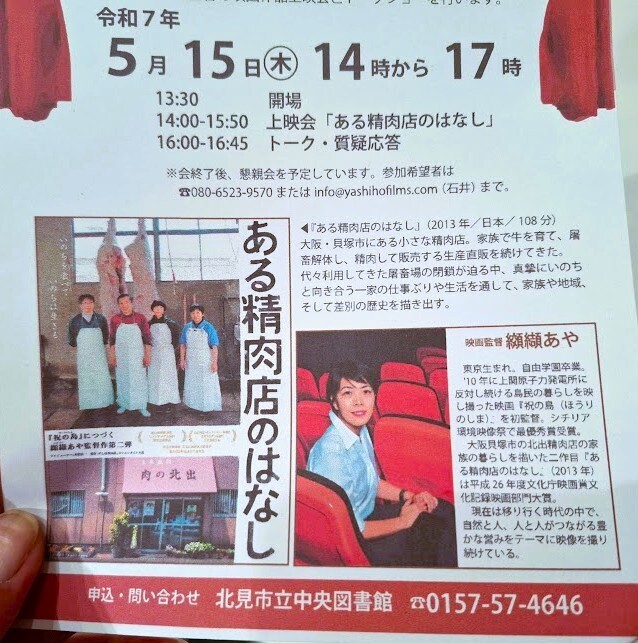 令和７年
5月15日㊍14時から17時
13:30 開場
14:00-15:50 上映会「ある精肉店のはなし」
16:00-16:45 トーク・質疑応答
※会終了後、懇親会を予定しています。参加希望者は
☎080-6523-9570 または info@yashihofilms.com（石井）まで。
いのちを食べて
いのちは生きる
ある精肉店のはなし
『祝の島』につづく
纐纈あや監督作第二弾
肉の北出
◀『ある精肉店のはなし』（2013 年／日本／ 108 分）
大阪・貝塚市にある小さな精肉店。家族で牛を育て、屠
畜解体し、精肉して販売する生産直販を続けてきた。
代々利用してきた屠畜場の閉鎖が迫る中、真摯にいのち
と向き合う一家の仕事ぶりや生活を通して、家族や地域、
そして差別の歴史を描き出す。
映画監督 纐纈あや
東京生まれ。自由学園卒業。
'10 年に上関原子力発電所に
反対し続ける島民の暮らしを映
し撮った映画『祝の島（ほうり
のしま）』を初監督。シチリア
環境映像祭で最優秀賞受賞。
大阪貝塚市の北出精肉店の家
族の暮らしを描いた二作目『あ
る精肉店のはなし』（2013 年）
は平成 26 年度文化庁映画賞文
化記録映画部門大賞。
現在は移り行く時代の中で、
自然と人、人と人がつながる豊
かな営みをテーマに映像を撮り
続けている。
申込・問い合わせ 北見市立中央図書館 ☎0157-57-4646